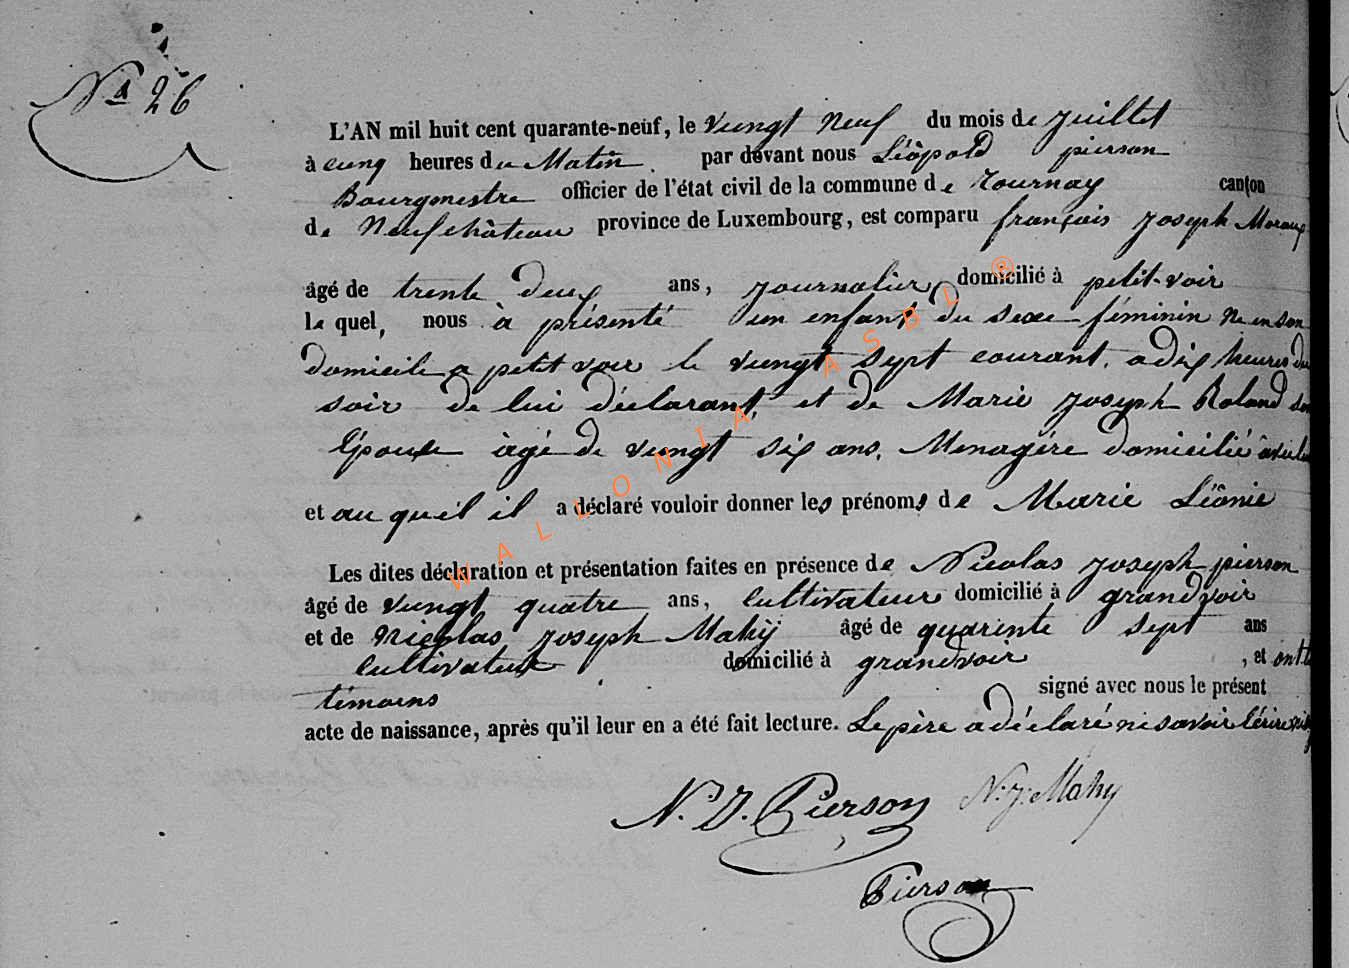 Nº 26
L'AN mil huit cent quarante-neuf, le vungt neuf du mois de juillet
à cinq heures du Matin par devant nous Léôpold pierson
Bourgmestre officier de l'état civil de la commune de Tournay canton
de Neufchâteau province de Luxembourg, est comparu françois joseph Moraux
âgé de trente deux ans, journalier domicilié à petit-voir
le quel, nous à présenté un enfant du sexe féminin ne en son
domicile a petit voir le vungt sept courant, a dix heures du
soir de lui déclarant, et de Marie joseph Roland son
Epouse àgé de vungt six ans, Menagére domicilié avec lui
et au quél il a déclaré vouloir donner les prénoms de Marie Léônie
Les dites déclaration et présentation faites en présence de Nicolas joseph pierson
âgé de vungt quatre ans, cultivateur domicilié à grandvoir
et de Nicolas joseph Mahy âgé de quarente sept ans
cultivateur domicilié à grandvoir , et ont les
témoins signé avec nous le présent
acte de naissance, après qu'il leur en a été fait lecture. Le père a déclaré ni savoir l'écrire
N. J. Pierson N. J. Mahy
Pierson
WALLONIA ASBL ®